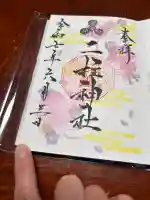 奉拝
二柱神社
令和七年六月日